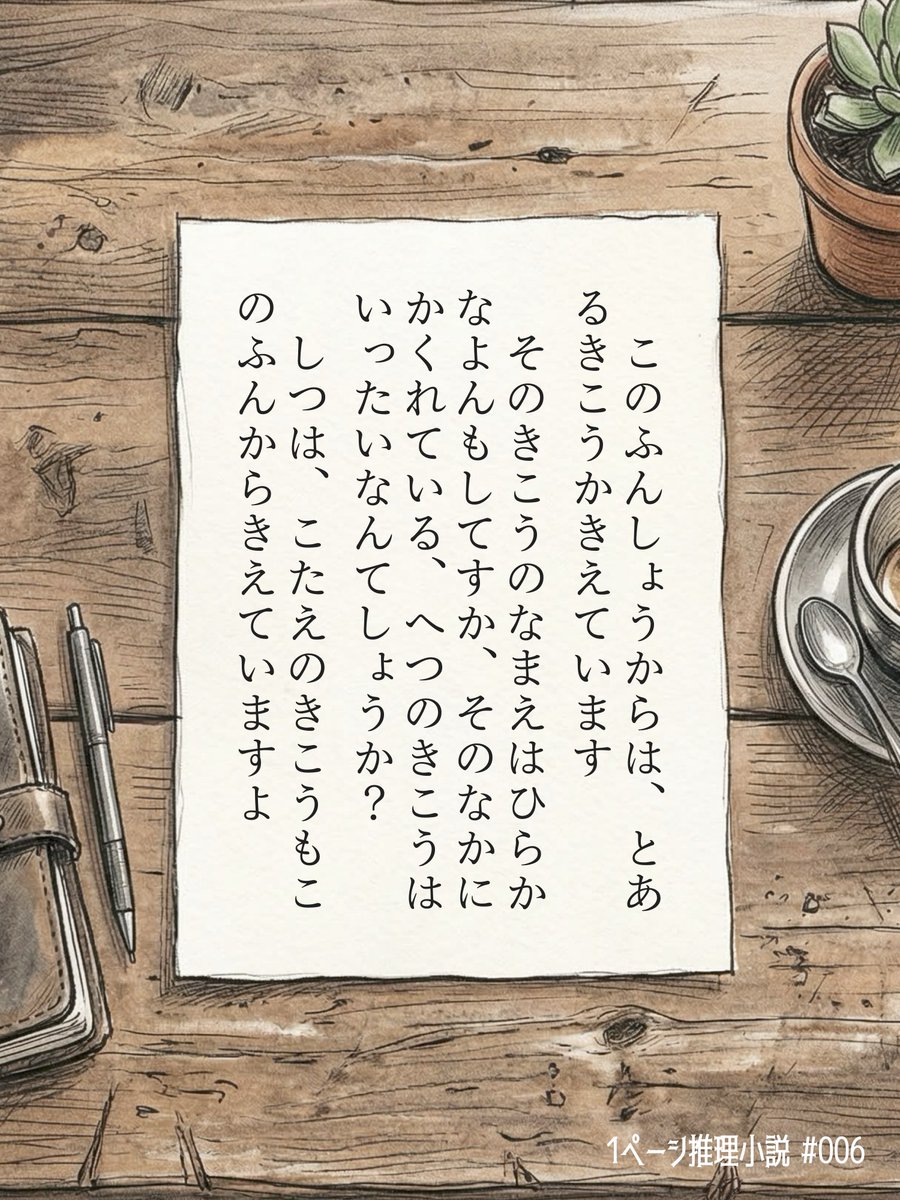 このふんしょうからは、とあ
るきこうかきえています
そのきこうのなまえはひらか
なよんもしてすか、そのなかに
かくれている、へつのきこうは
いったいなんてしょうか？
しつは、こたえのきこうもこ
のふんからきえていますよ
1ページ推理小説 #006